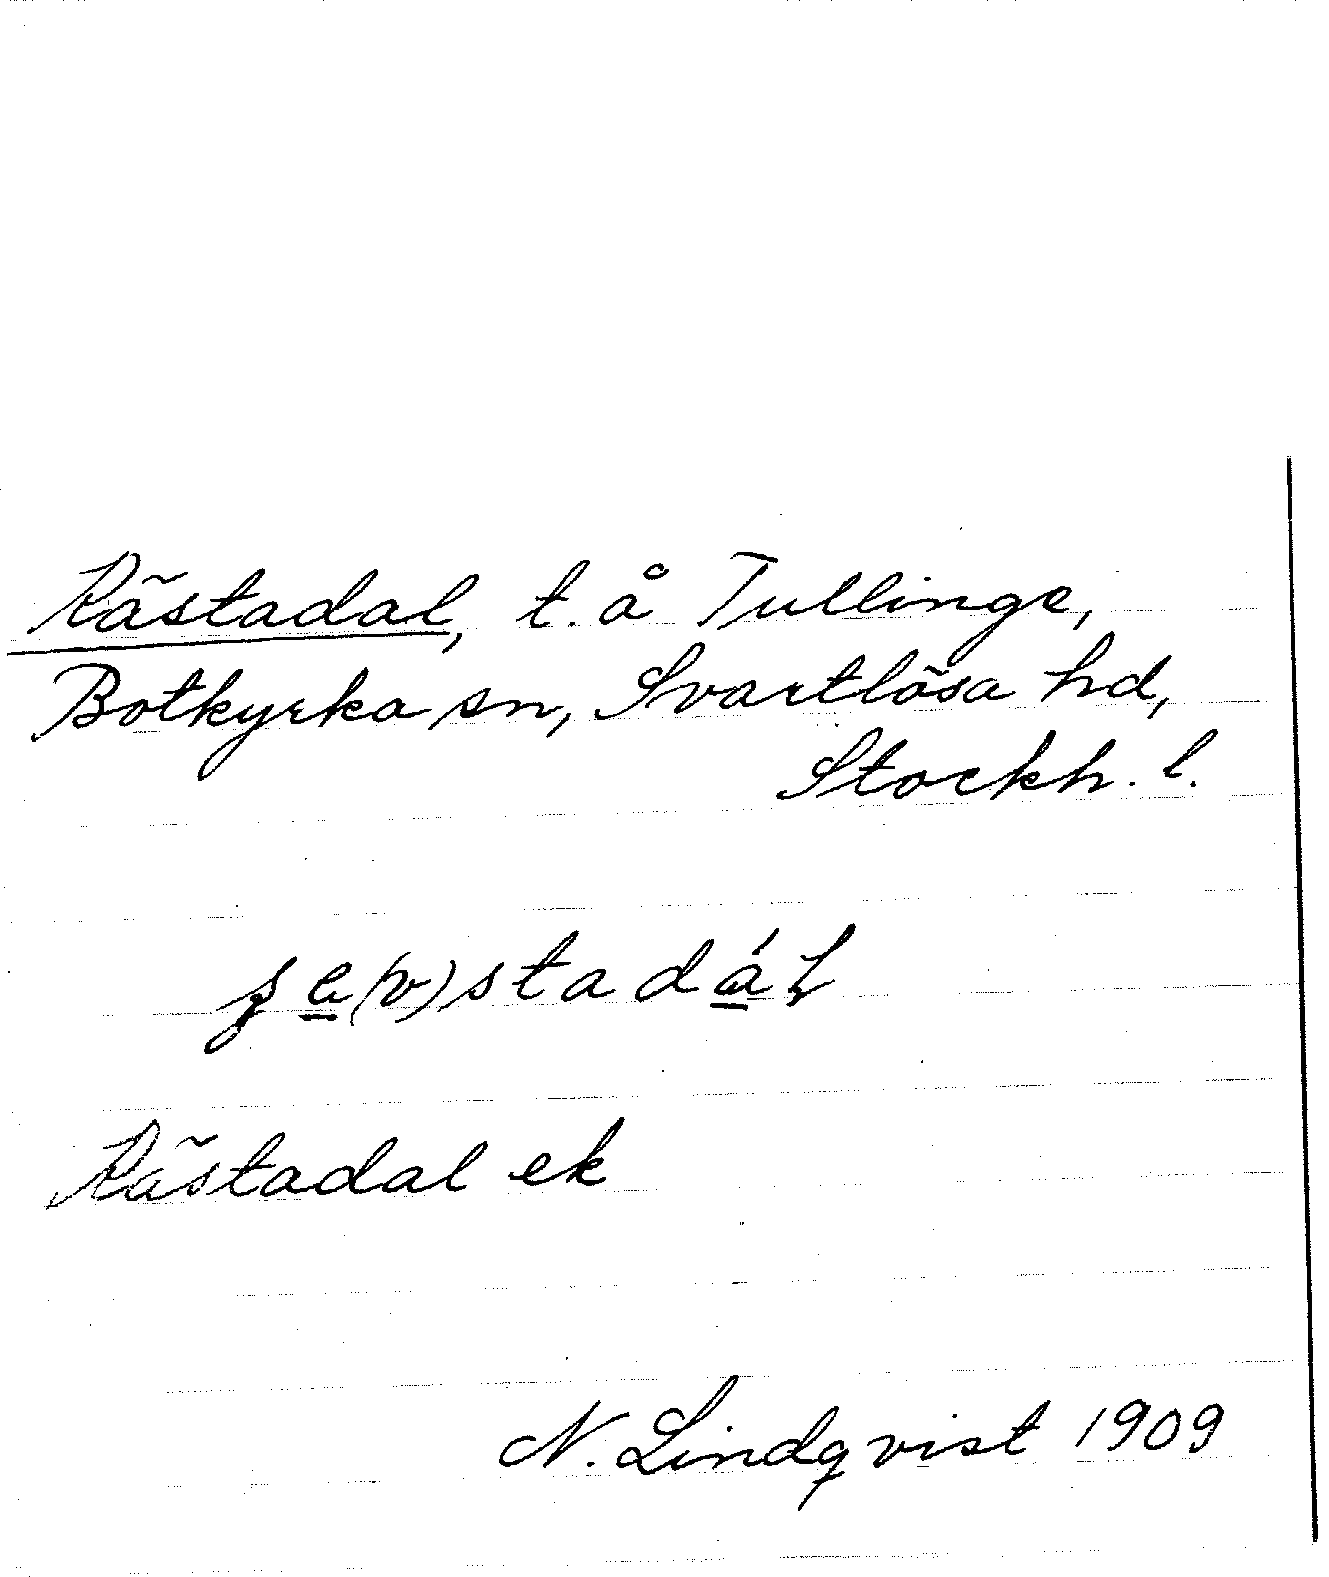 Rästadal, t. å Tullinge,
Botkyrka sn, Svartlösa hd,
Stockh. l.
Rästadal ek
N. Lindqvist 1909